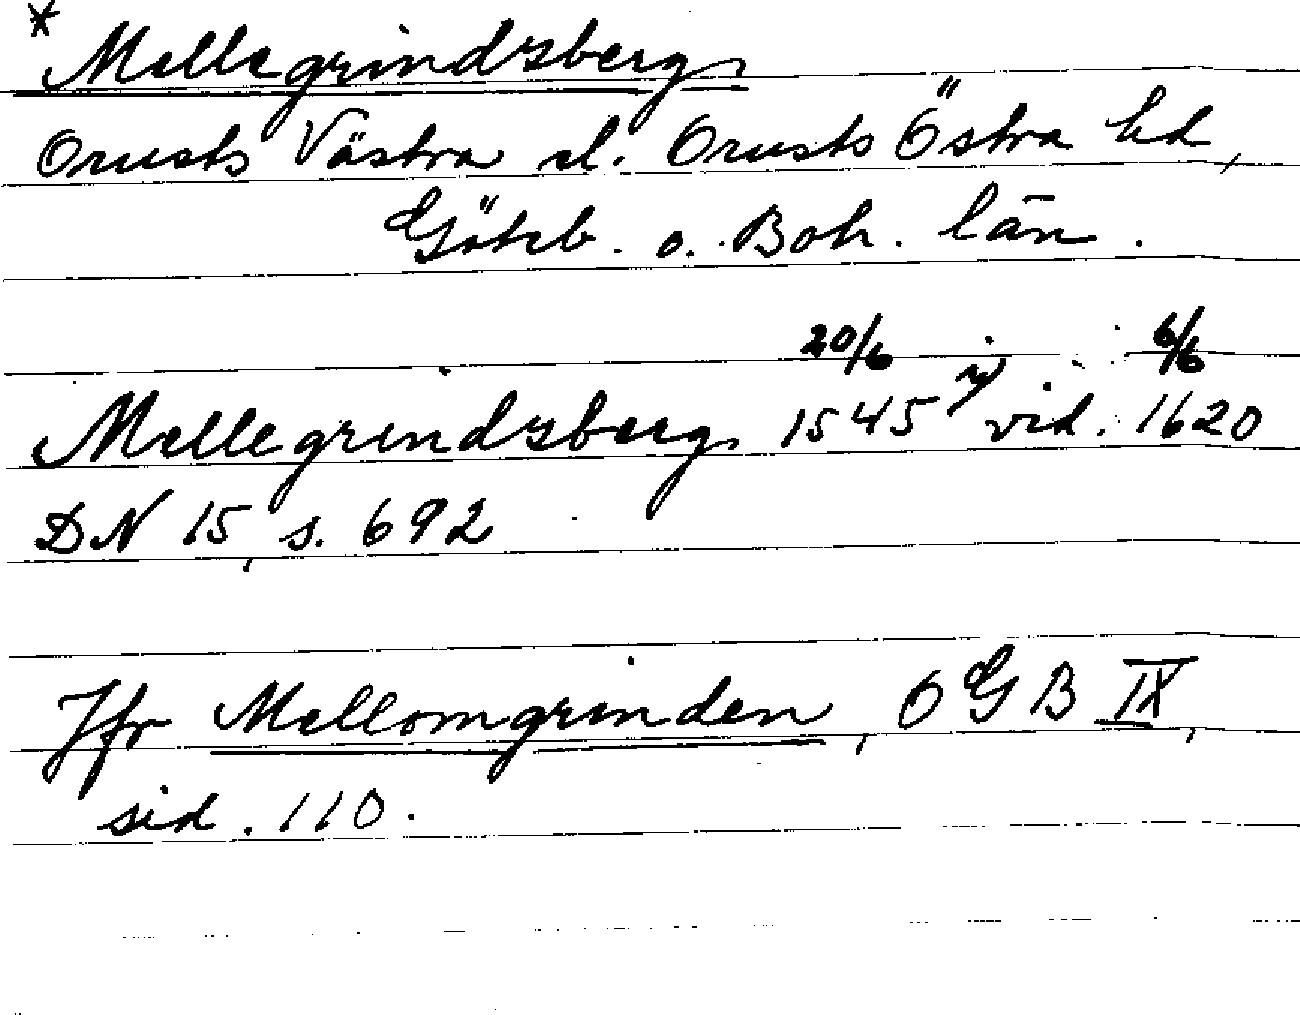 * Mellegrindzberg
Orusts Västra el. Orusts Östra hd,
Göteb. o. Boh. län.
Mellegrindzberg 20/6 1545 i vid. 6/6 1620
DN 15, s. 692
Jfr Mellomgrinden, OGB IX,
sid. 110.